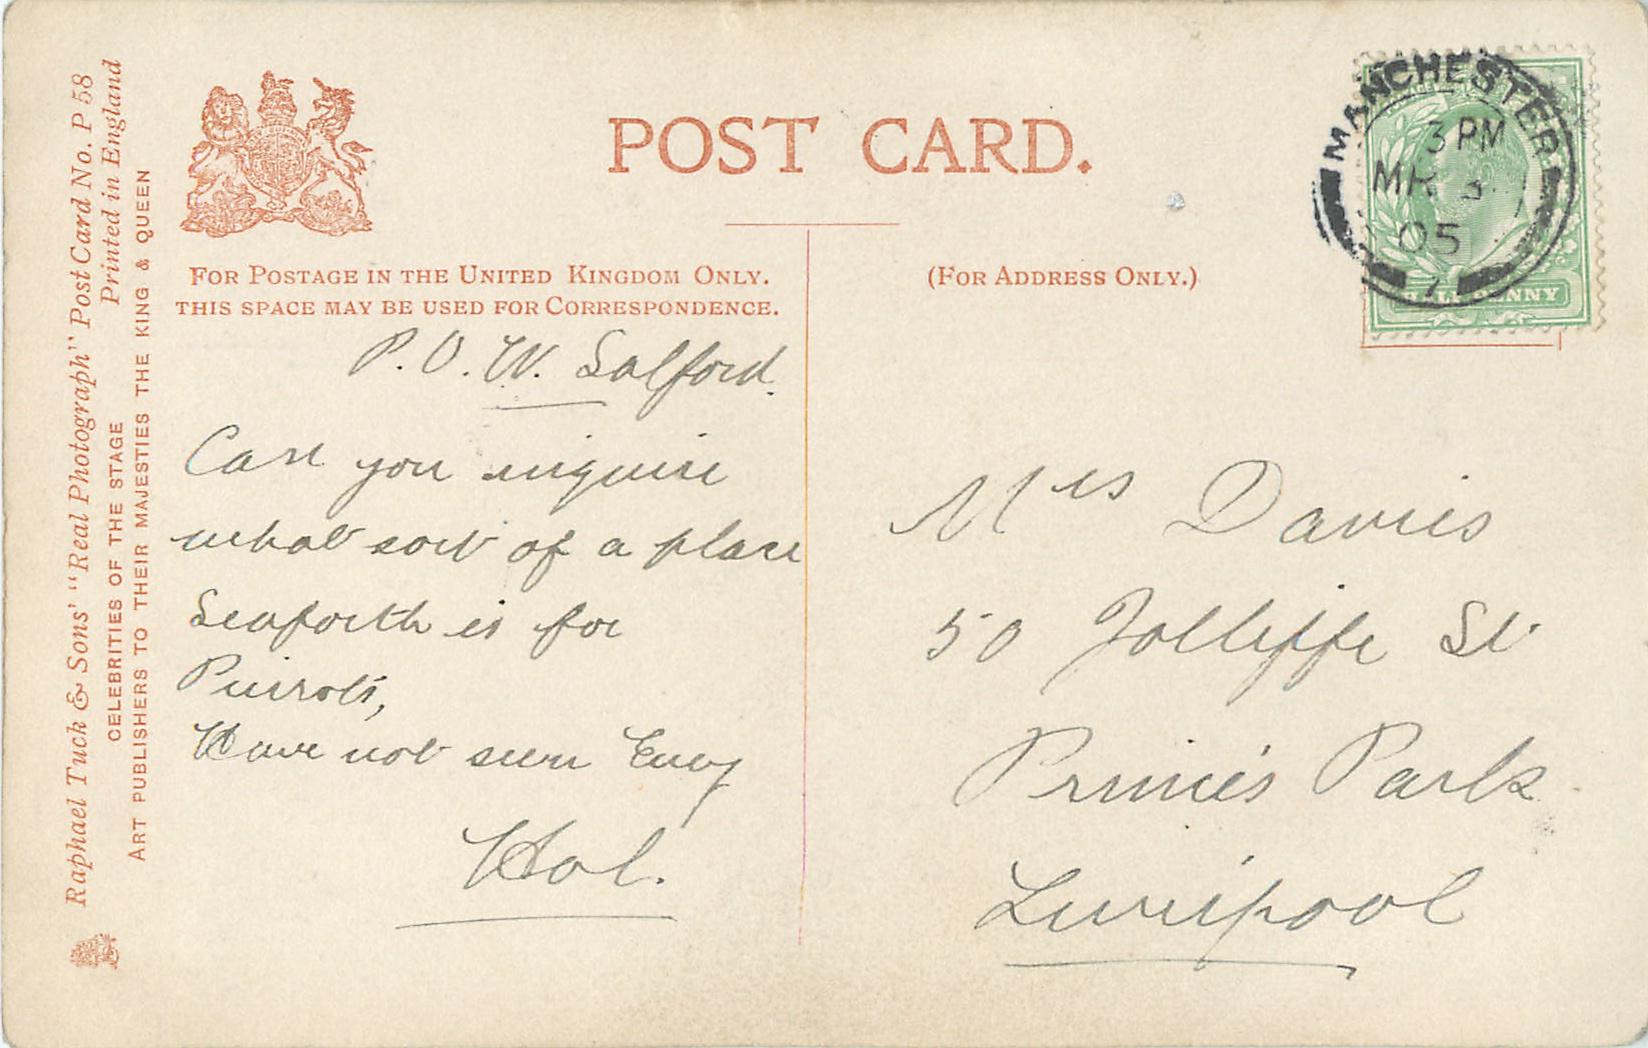 Raphael Tuck & Sons' "Real Photograph" Post Card No. P 58
Printed in England
CELEBRITIES OF THE STAGE
ART PUBLISHERS TO THEIR MAJESTIES THE KING & QUEEN
POST CARD.
FOR POSTAGE IN THE UNITED KINGDOM ONLY.
THIS SPACE MAY BE USED FOR CORRESPONDENCE.
(FOR ADDRESS ONLY.)
MANCHESTER
3 PM
MR 3
05
HALFPENNY
P.O.W. Salford.
Can you inquire
what sort of a place
Seaforth is for
Pierrots,
Have not seen
Hol.
Mrs Davies
50 Jolliffe St
Princes Park
Liverpool